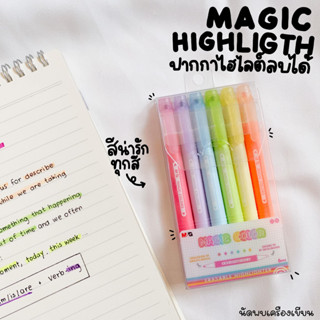 MAGIC
HIGHLIGTH
ปากกาไฮไลต์ลบได้
สีน่ารัก
ทุกสี
us for describe
while we are taking
something that happening
of time and we often
moment, today, this week
is/are + verb-ing
M&G
MAGIC COLOR
นัดพบเครื่องเขียน